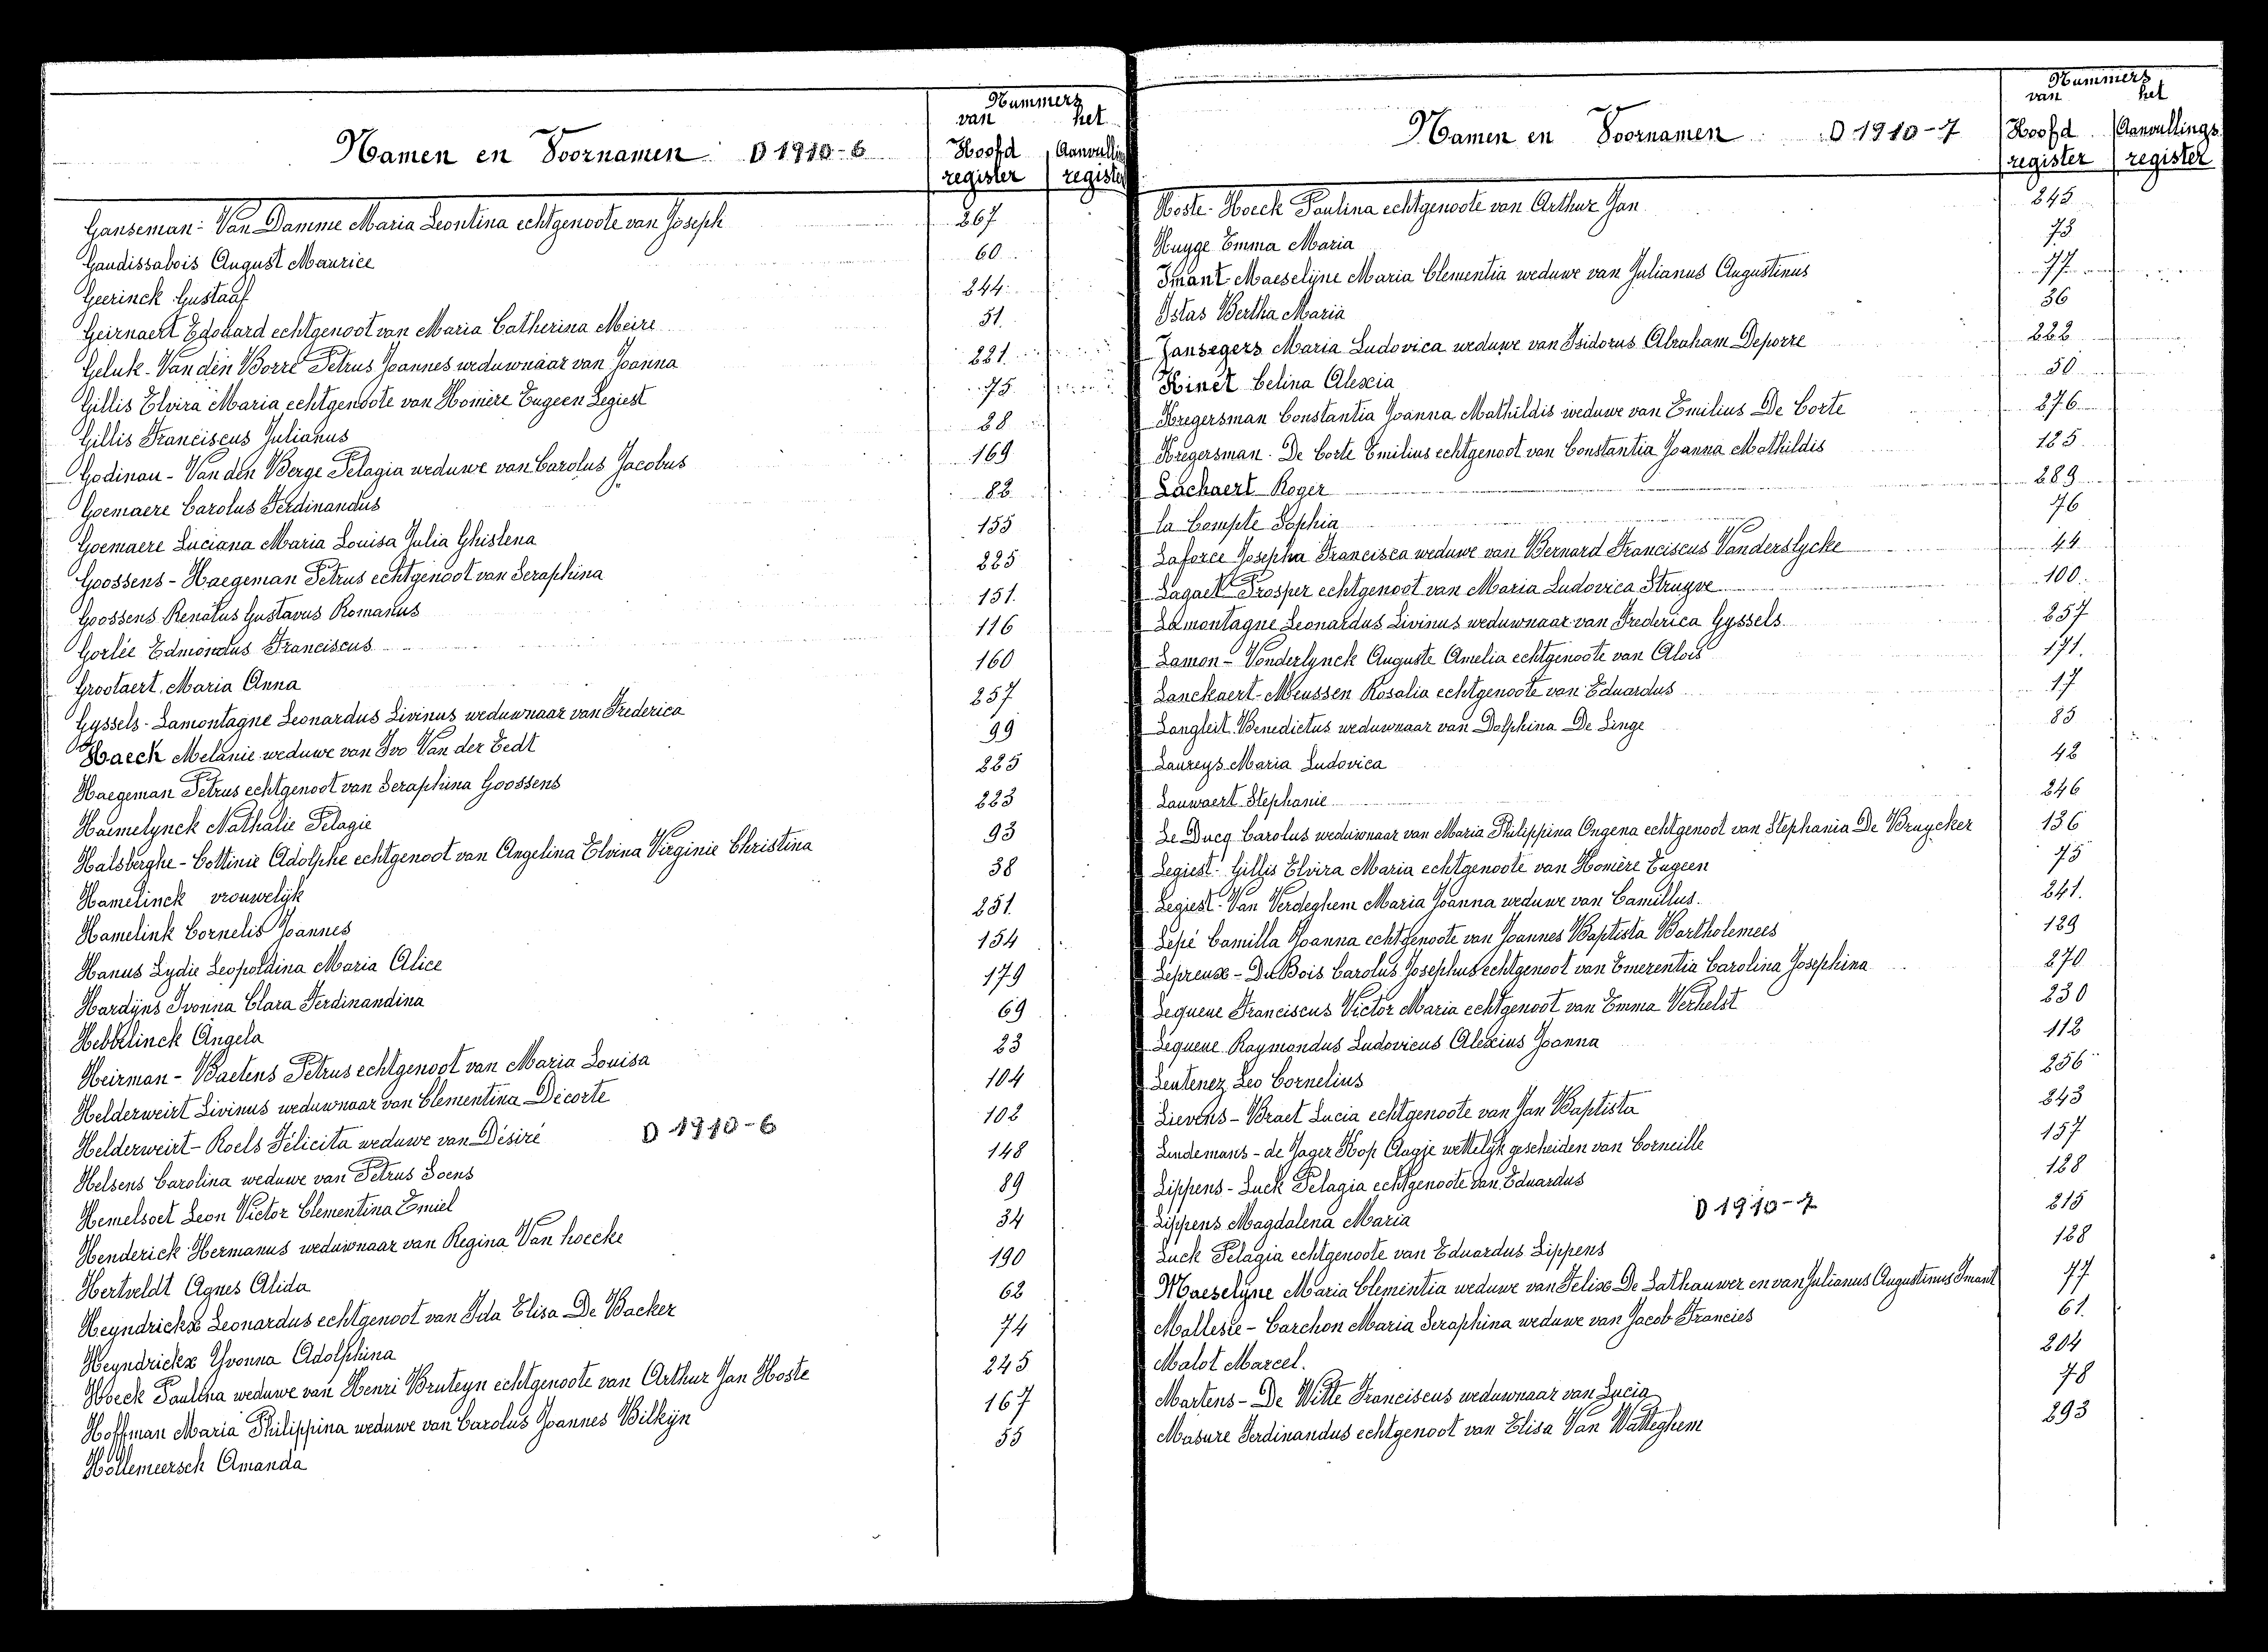 Nummers
van het
Namen en Voornamen D 1910-6 Hoofd register Aanvulling register
Ganseman-Van Damme Maria Leontina echtgenoote van Joseph 267
Gaudissabois August Maurice 60
Geerinck Gustaaf 244
Geirnaert Edouard echtgenoot van Maria Catherina Meire 51
Geluk-Van den Borre Petrus Joannes weduwnaar van Joanna 221
Gillis Elvira Maria echtgenoote van Homère Eugeen Legiest 75
Gillis Franciscus Julianus 28
Godinau-Van den Berge Pelagia weduwe van Carolus Jacobus 169
Goemaere Carolus Ferdinandus 82
Goemaere Luciana Maria Louisa Julia Ghislena 155
Goossens-Haegeman Petrus echtgenoot van Seraphina 225
Goossens Renatus Gustavus Romanus 151
Gorlée Edmondus Franciscus 116
Grootaert Maria Anna 160
Gyssels-Lamontagne Leonardus Livinus weduwnaar van Frederica 257
Haeck Melanie weduwe van Ivo Van der Eedt 99
Haegeman Petrus echtgenoot van Seraphina Goossens 225
Haemelynck Nathalie Pelagie 223
Halsberghe-Cottinie Adolphe echtgenoot van Angelina Elvina Virginie Christina 93
Hamelinck vrouwelijk 38
Hamelink Cornelis Joannes 251
Hanus Lydie Leopoldina Maria Alice 154
Hardijns Ivonna Clara Ferdinandina 179
Hebbelinck Angela 69
Heirman-Baetens Petrus echtgenoot van Maria Louisa 23
Helderweirt Livinus weduwnaar van Clementina Decorte 104
Helderweirt-Roels Félicita weduwe van Désiré D 1910-6 102
Helsens Carolina weduwe van Petrus Soens 148
Hemelsoet Leon Victor Clementina Emiel 89
Henderick Hermanus weduwnaar van Regina Van hoecke 34
Hertveldt Agnes Alida 190
Heyndrickx Leonardus echtgenoot van Ida Elisa De Backer 62
Heyndrickx Yvonna Adolphina 74
Hoeck Paulina weduwe van Henri Bruteyn echtgenoote van Arthur Jan Hoste 245
Hoffman Maria Philippina weduwe van Carolus Joannes Bilkijn 167
Hollemeersch Amanda 55
Nummers
van het
Namen en Voornamen D 1910-7 Hoofd register Aanvullings register
Hoste-Hoeck Paulina echtgenoote van Arthur Jan 245
Huyge Emma Maria 73
Imant-Maeselijne Maria Clementia weduwe van Julianus Augustinus 77
Istas Bertha Maria 36
Jansegers Maria Ludovica weduwe van Isidorus Abraham Deporre 222
Kinet Celina Alexia 50
Kregersman Constantia Joanna Mathildis weduwe van Emilius De Corte 276
Kregersman-De Corte Emilius echtgenoot van Constantia Joanna Mathildis 185
Lachaert Roger 289
la Compte Sophia 76
Laforce Josepha Francisca weduwe van Bernard Franciscus Vanderslycke 44
Lagaet Prosper echtgenoot van Maria Ludovica Struyve 100
Lamontagne Leonardus Livinus weduwnaar van Frederica Gyssels 257
Lamon-Vonderlynck Auguste Amelia echtgenoote van Alois 171
Lanckaert-Meussen Rosalia echtgenoote van Eduardus 17
Langleit Benedictus weduwnaar van Dolphina De Linge 85
Laureys Maria Ludovica 42
Lauwaert Stephanie 246
Le Ducq Carolus weduwnaar van Maria Philippina Ongena echtgenoot van Stephania De Bruycker 136
Legiest-Gillis Elvira Maria echtgenoote van Homère Eugeen 75
Legiest-Van Verdeghem Maria Joanna weduwe van Camillus 241
Lepé Camilla Joanna echtgenoote van Joannes Baptista Bartholemees 129
Lepreux-Du Bois Carolus Josephus echtgenoot van Emerentia Carolina Josephina 270
Lequene Franciscus Victor Maria echtgenoot van Emma Verhelst 230
Lequene Raymondus Ludovicus Alexius Joanna 112
Leutenez Leo Cornelius 256
Lievens-Braet Lucia echtgenoote van Jan Baptista 243
Lindemans-de Jager Kop Aagje wettelijk gescheiden van Corneille 157
Lippens-Luck Pelagia echtgenoote van Eduardus 128
Lippens Magdalena Maria D 1910-7 215
Luck Pelagia echtgenoote van Eduardus Lippens 128
Maeselyne Maria Clementia weduwe van Felix De Lathauwer en van Julianus Augustinus Imant 77
Mallesie-Carchon Maria Seraphina weduwe van Jacob Francies 61
Malot Marcel. 204
Martens-De Witte Franciscus weduwnaar van Lucia 78
Masure Ferdinandus echtgenoot van Elisa Van Watteghem 293